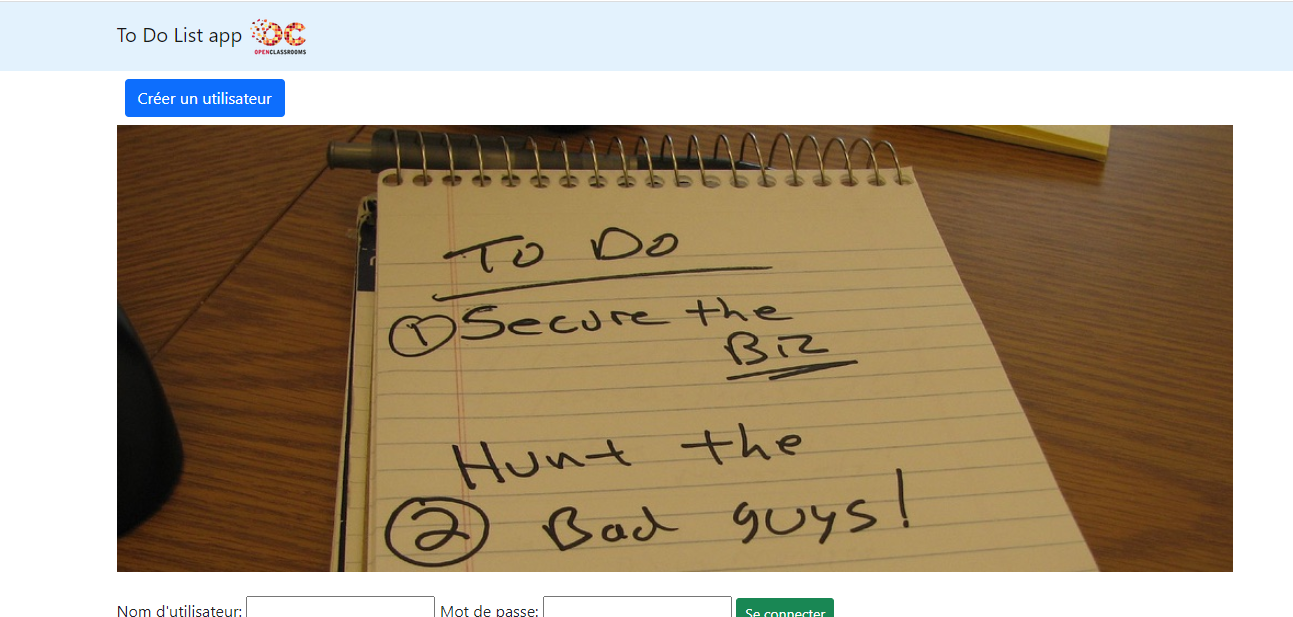 To Do List app
OPENCLASSROOMS
Créer un utilisateur
TO DO
① Secure the
Biz
Hunt the
② Bad guys!
Nom d'utilisateur: Mot de passe: Se connecter